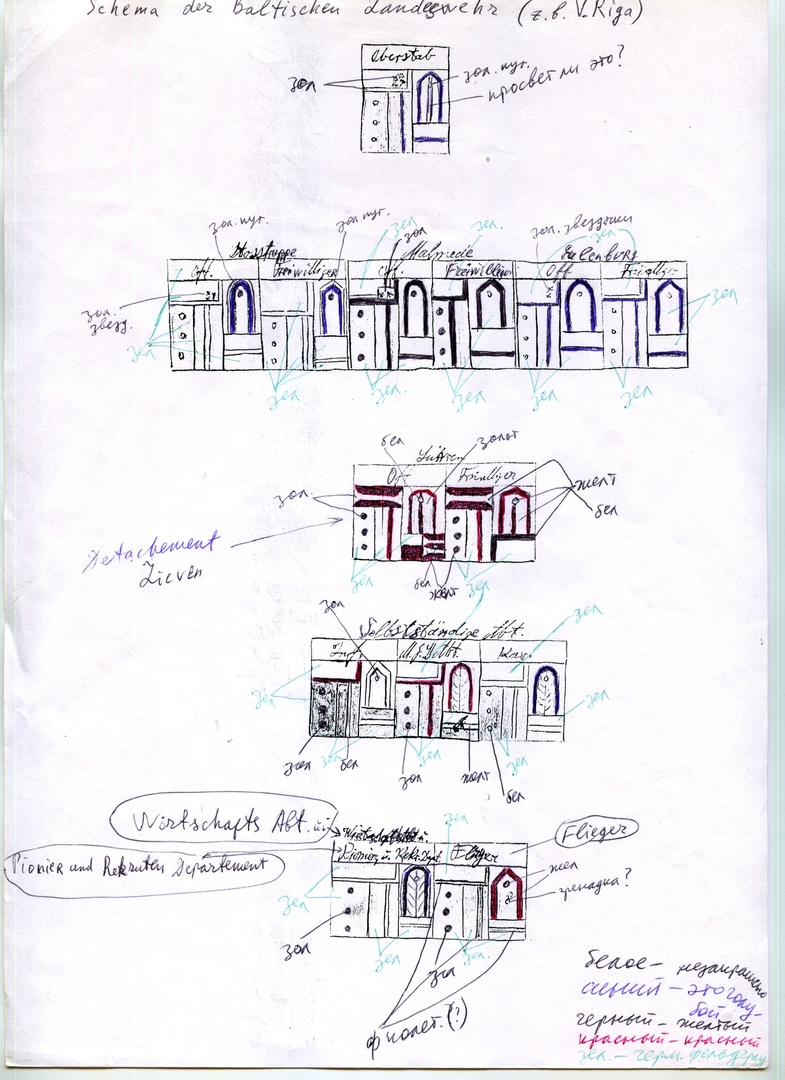 Schema der Baltischen Landeswehr (z.b. V. Riga)
Oberstab
зол
зол. пуг.
просвет ли это?
зол. пуг.
зол. пуг.
зел
зол
зел.
зол. звездочки
зел
Stosstruppe
Malmede
Eulenburg
Off.
Freiwilliger
Off.
Freiwilliger
Off
Freiwilliger
зол. звезд.
зел
зел
зел
зел
зел
зел
зел
бел
золот
Off
Freiwilliger
зол.
желт
бел
Detachement
Zieven
зел
бел
желт
зел
зол
зел
Selbstständige Abt.
зел
зел
зол
зел
бел
зол
зел
желт
зел
бел
Wirtschafts Abt. u.
зел
Flieger
Pionier u. Rekr. Dept
Flieger
Pionier und Rekruten Departement
жел
гренадка?
зел
зол
зел
зол
зел.
фиолет. (?)
белое – незакрашено
синий – это голубой
черный – желтый
красный – красный
зел. – герм. фельдграу